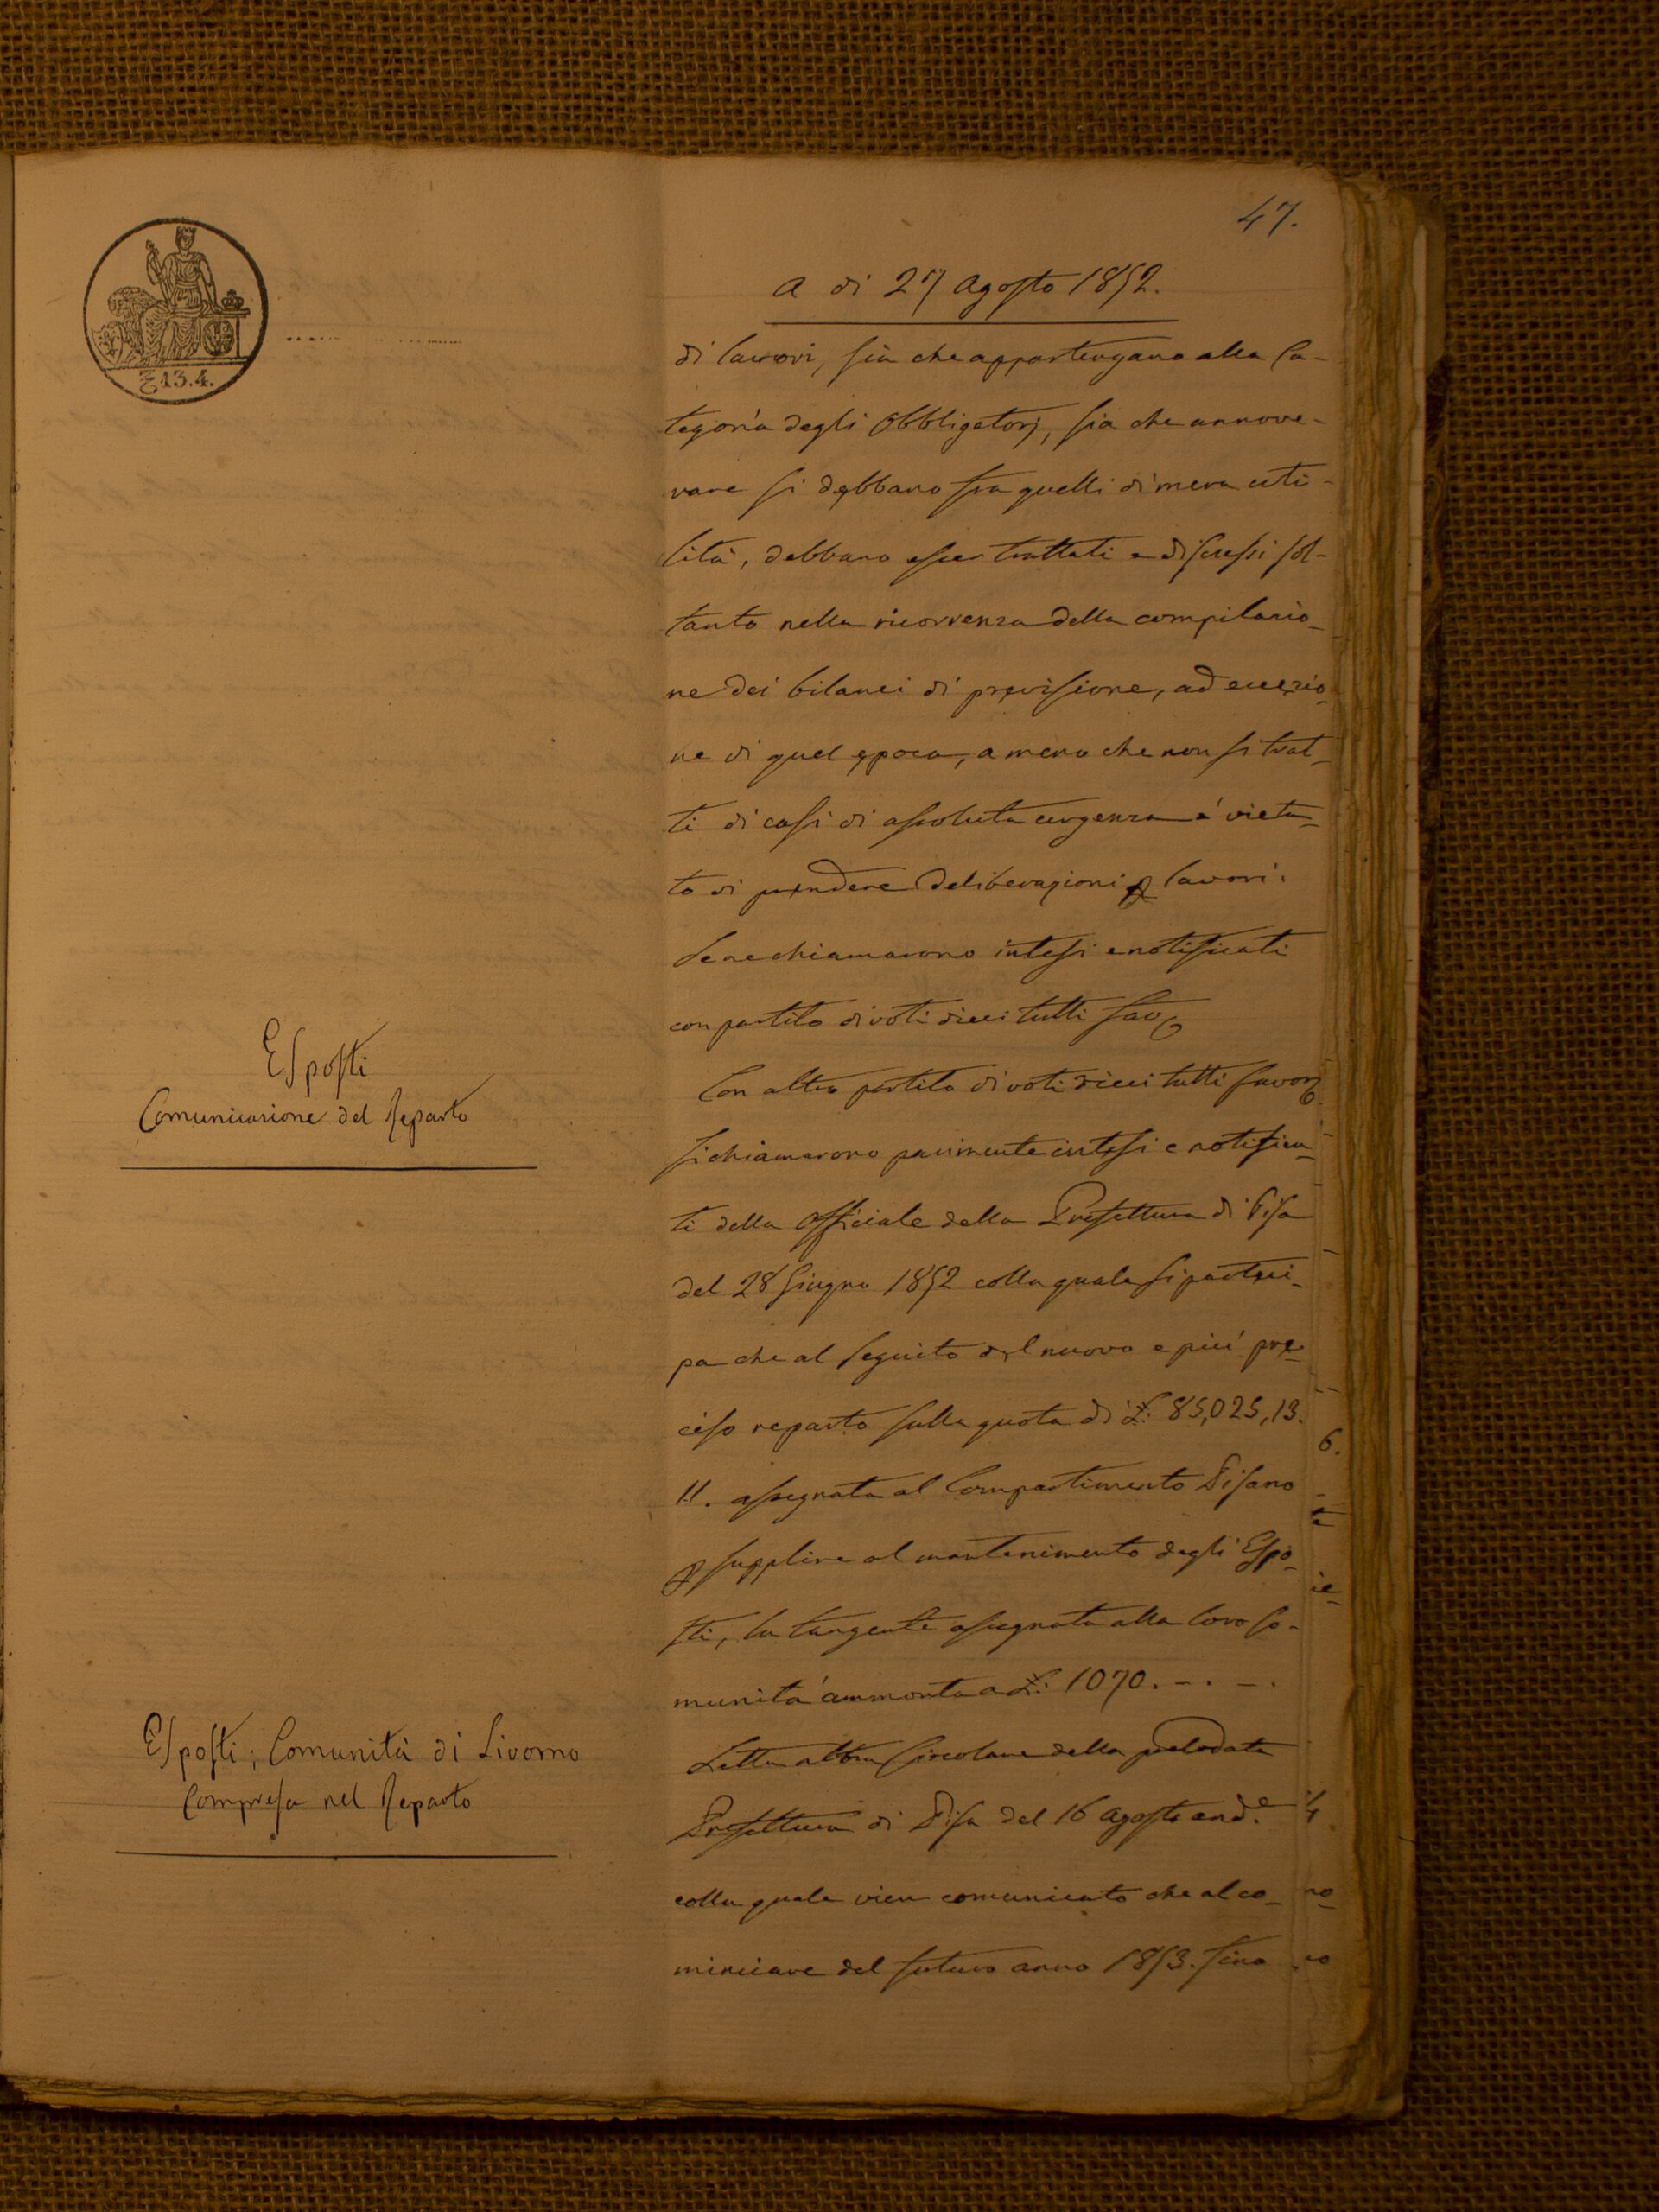 47.
13.4.
A di 27 Agosto 1852.
di lavori, sia che appartengano alla Ca-
tegoria degli Obbligatorj, sia che annove-
rare si debbano fra quelli di mera uti-
lità, debbano esser trattati e discussi sol-
tanto nella ricorrenza della compilazio-
ne dei bilanci di previsione, ad eccezio-
ne di quel epoca, a meno che non si trat-
ti di casi di assoluta urgenza è vieta-
to di prendere deliberazioni p lavori.
Se ne chiamarono intesi e notificati
con partito di voti dieci tutti fav
Esposti
Comunicazione del Reparto
Con altro partito di voti dieci tutti favor
si chiamarono parimente intesi e notifica-
ti della Officiale della Prefettura di Pisa
del 28 Giugno 1852 colla quale si parteci-
pa che al seguito del nuovo e più pre-
ciso reparto sulla quota di £: 85,025,13.
11. assegnata al Compartimento Pisano
p supplire al mantenimento degli Espo-
sti, la tangente assegnata alla loro Co-
munità ammonta a £: 1070. -. -.
Esposti; Comunità di Livorno
Compresa nel Reparto
Letta altra Circolare della prelodata
Prefettura di Pisa del 16 Agosto and.e
colla quale vien comunicato che al co-
minciare del futuro anno 1853. sino
6.
te
ie-
no-